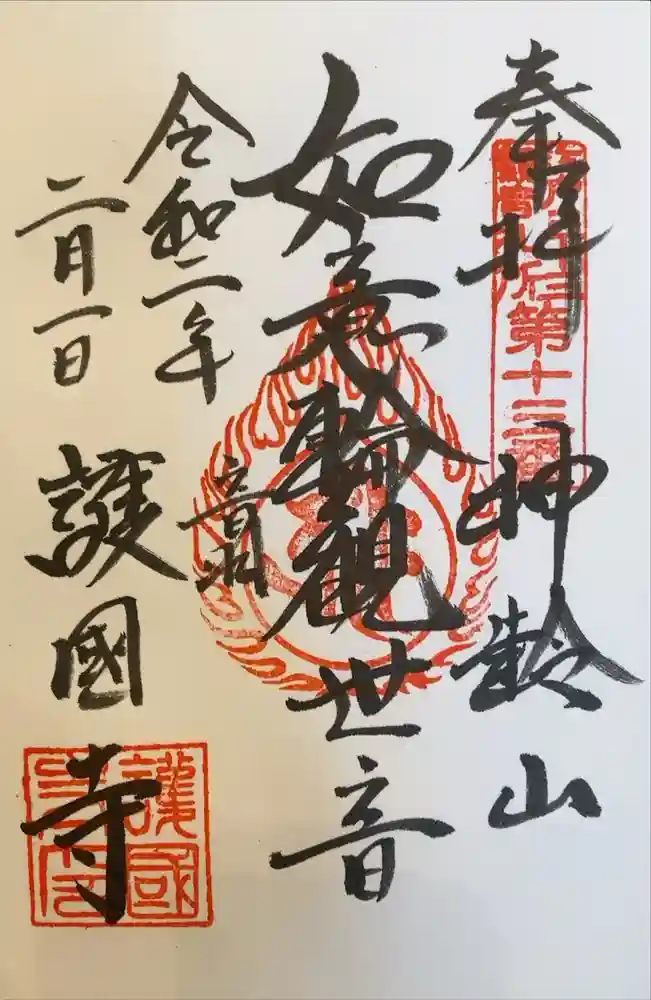 奉拝
神齢山
如意輪觀世音
音羽
護國寺
令和二年
二月一日
第十三番
護國